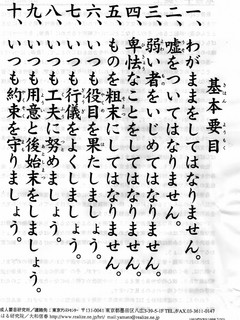 基本要目
一、わがままをしてはなりません。
二、嘘をついてはなりません。
三、弱い者をいじめてはなりません。
四、卑怯なことをしてはなりません。
五、ものを粗末にしてはなりません。
六、いつも役目を果たしましょう。
七、いつも行儀をよくしましょう。
八、いつも工夫に努めましょう。
九、いつも用意と後始末をしましょう。
十、いつも約束を守りましょう。